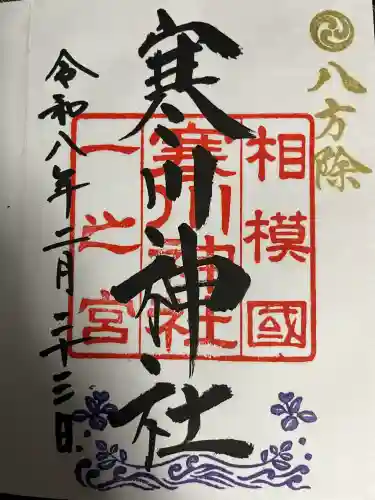 八方除
相模國
寒川神社
一之宮
寒川神社
令和八年二月二十二日